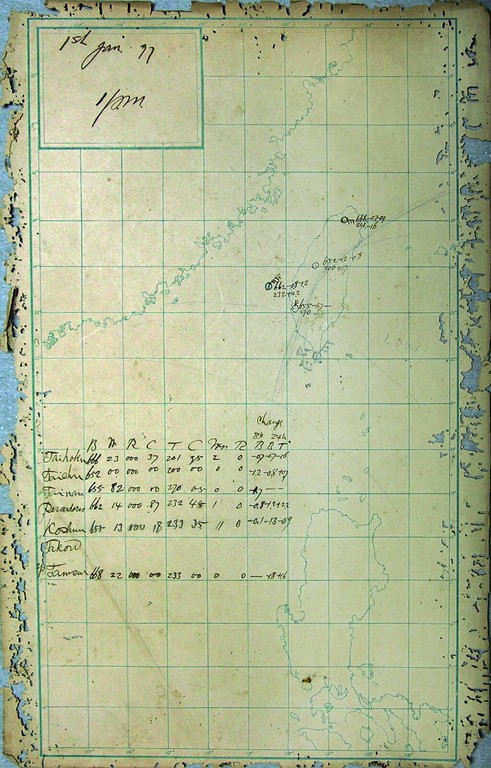 1st Jan. 97
1pm
668-07-07
201-16
652-12-08
200+07
662-08+2
232+22
655-07-
270
Change
8h 24h
B W R C T C Wr R B B T
Taihoku 668 23 000 37 201 95 2 0 -07-07-16
Taichu 652 00 00 00 200 00 0 0 -12-08+07
Tainan 655 82 000 00 270 05 0 0 -07
Pescadores 662 14 000 87 232 45 1 0 -08+2+22
Koshun 655 13 000 18 233 35 11 0 -01-13-09
Takow
Tamsui 668 22 000 00 233 00 0 0 — -18+16